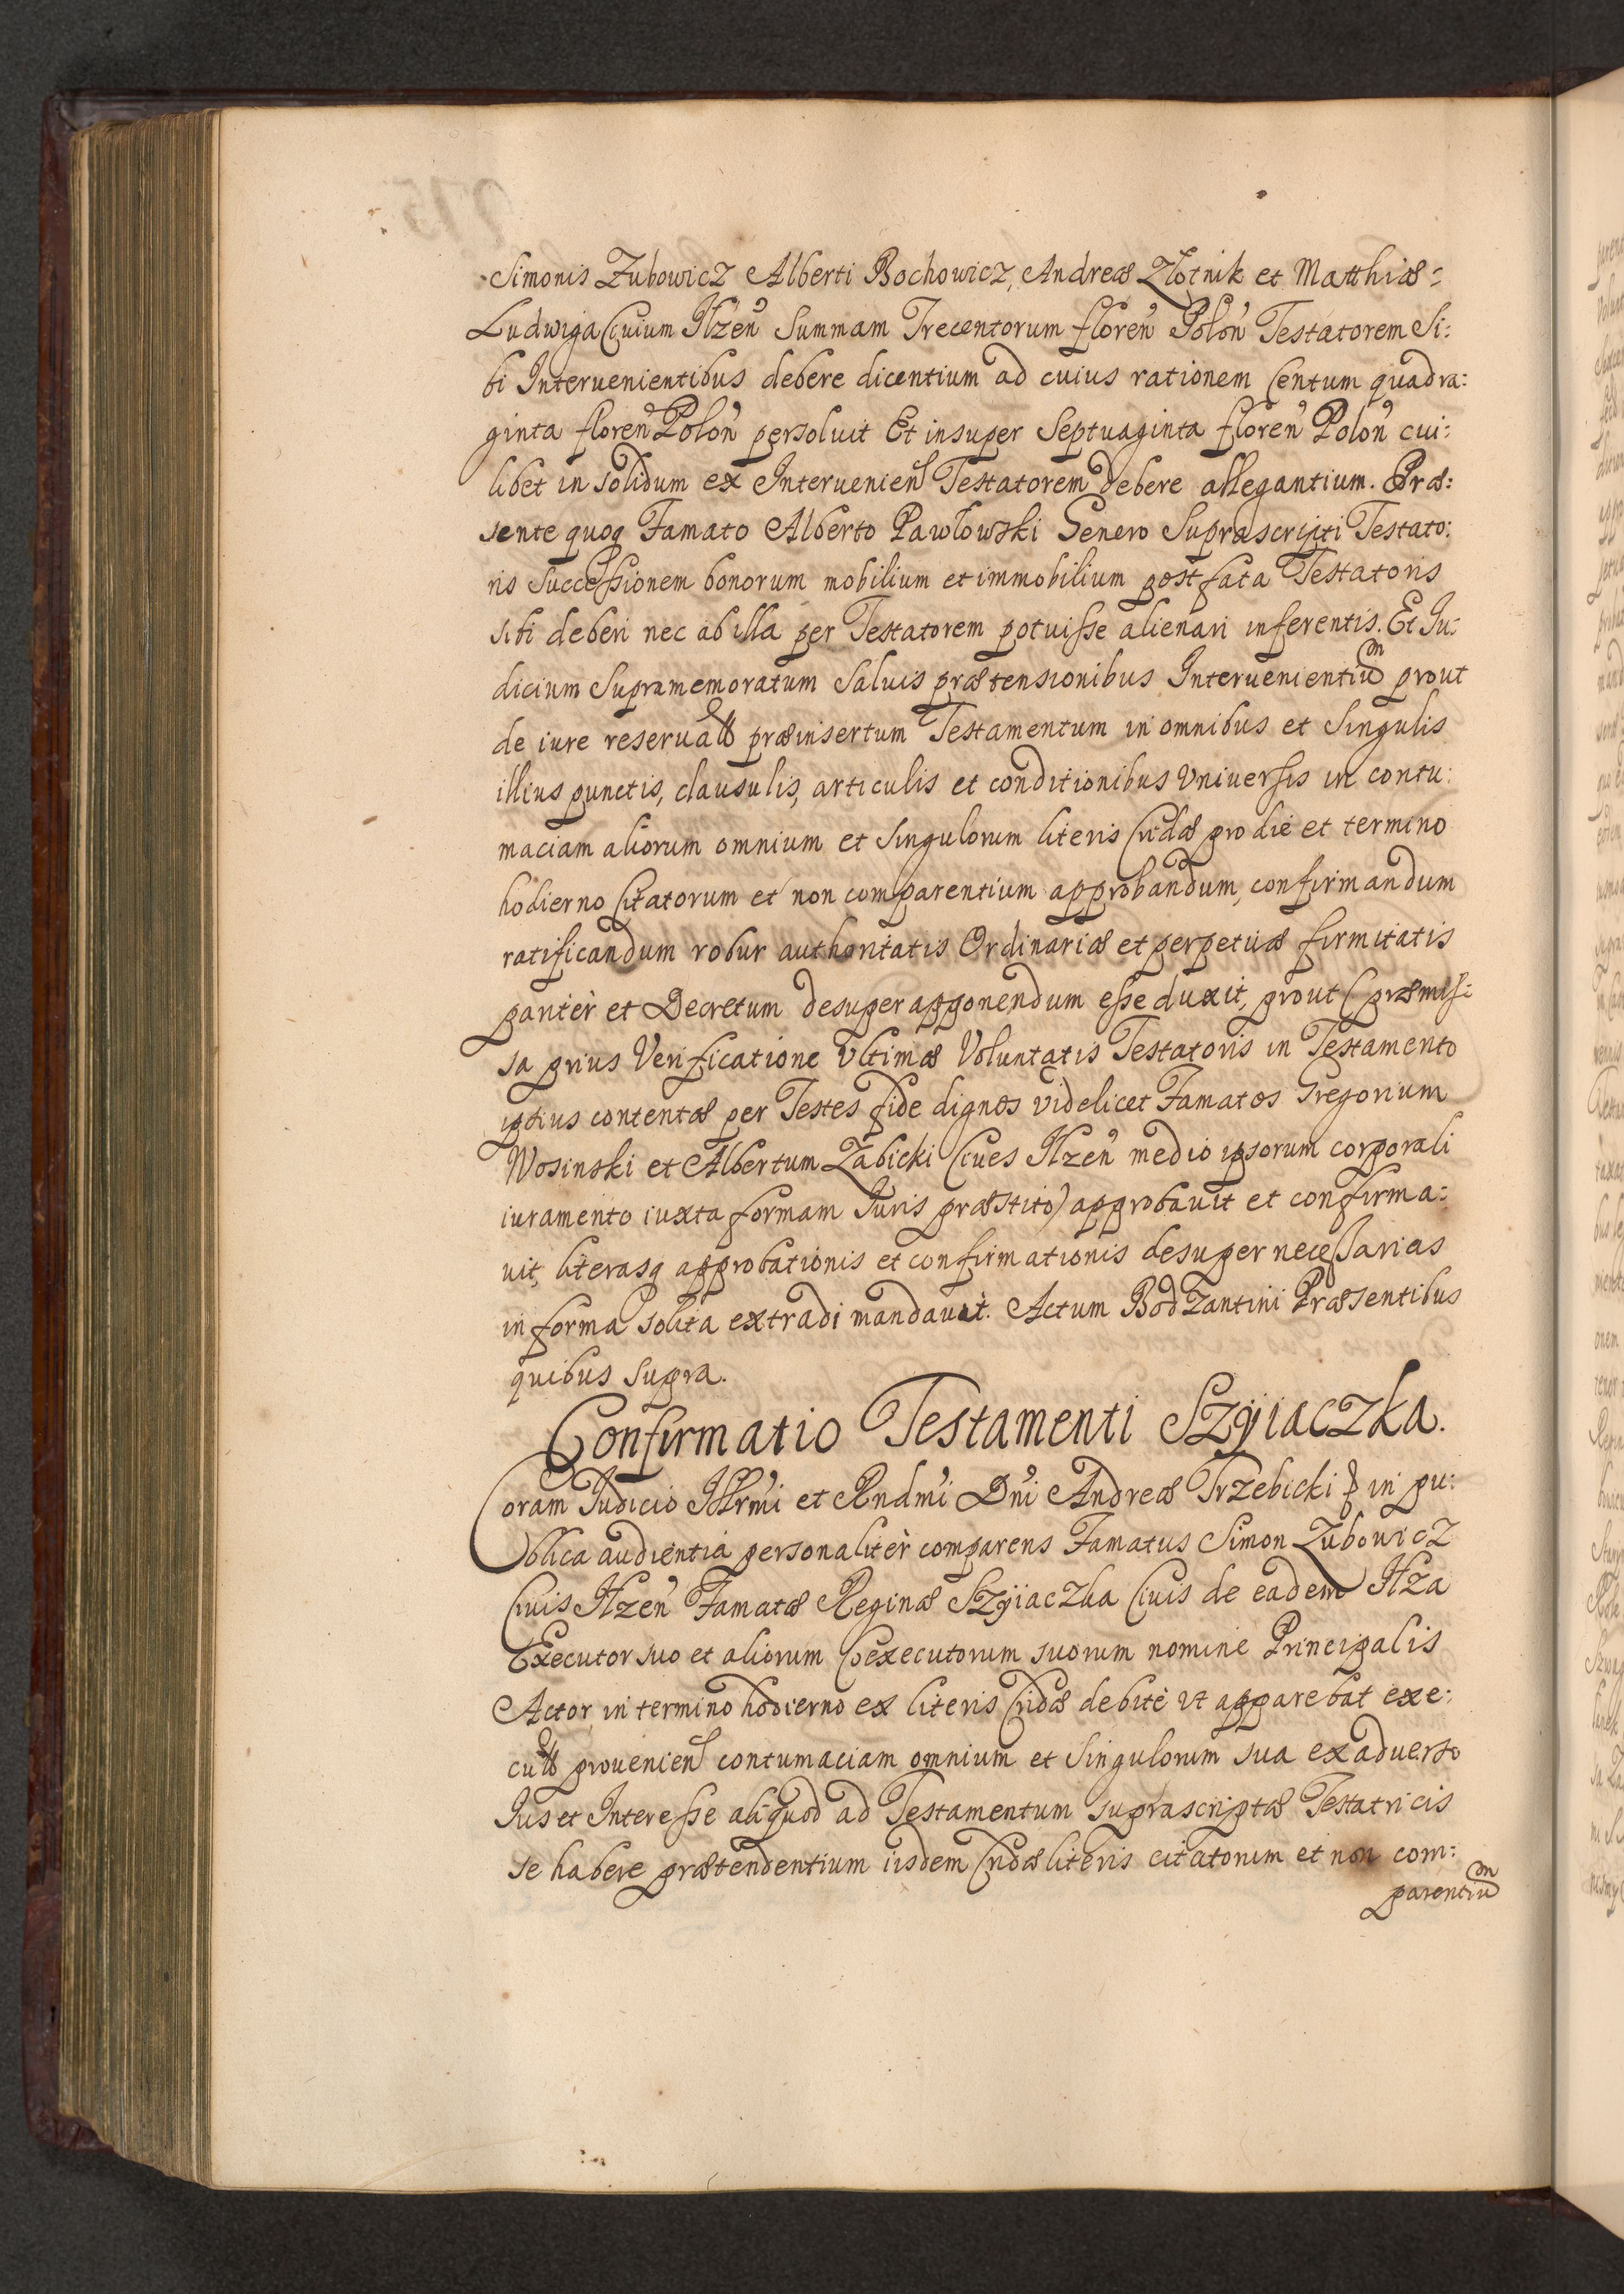 Simonis Zubowicz Alberti Bochowicz, Andreæ Złotnik et Matthiæ=
Ludwiga Ciuium Ilzen̄ Summam Trecentorum floren̄ Polon̄ Testatorem Si:
bi Interuenientibus debere dicentium ad cuius rationem Centum quadra:
ginta floren̄ Polon̄ persoluit Et insuper Septuaginta floren̄ Polon̄ cui:
libet in solidum ex Interuenien̄ Testatorem debere allegantium. Præ:
sente quoq Famato Alberto Pawłowski Genero Suprascripti Testato:
ris Successionem bonorum mobilium et immobilium post fata Testatoris
sibi deberi nec ab illa per Testatorem potuisse alienari inferentis. Et Iu:
dicium Supramemoratum Saluis prætensionibus Interuenientiūm prout
de iure præinsertum Testamentum in omnibus et Singulis
illius punctis, clausulis, articulis et conditionibus Vniuersis in contu:
maciam aliorum omnium et Singulorum literis Cridæ pro die et termino
hodierno Citatorum et non comparentium approbandum, confirmandum
ratificandum robur authoritatis Ordinariæ et perpetuæ firmitatis
pariter et Decretum desuper apponendum esse duxit, prout (præmis:
sa prius Verificatione Vltimæ Voluntatis Testatoris in Testamento
ipsius contentæ per Testes fide dignos videlicet Famatos Gregorium
Wosinski et Albertum Zabicki Ciues Ilzen̄ medio ipsorum corporali
iuramento iuxta formam Iuris præstito) approbauit et confirma:
uit, literasq approbationis et confirmationis desuper necessarias
in forma solita extradi mandauit. Actum Bodzantini Præsentibus
quibus supra.
Confirmatio Testamenti Szÿiaczka.
Coram Iudicio Illrm̄i et Rndm̄i Dn̄i Andreæ Trzebicki in pu:
blica audientia personalitèr comparens Famatus Simon Zubowicz
Ciuis Ilzen̄ Famatæ Reginæ Szÿiaczka Ciuis de eadem Ilza
Executor suo et aliorum Coexecutorum suorum nomine Principalis
Actor in termino hodierno ex literis Cridæ debitè vt apparebat exe:
prouenien̄ contumaciam omnium et Singulorum sua ex aduerso
Ius et Interesse aliquod ad Testamentum suprascriptæ Testatricis
se habere prætendentium iisdem Cridæ literis citatorum et non com:
parentiūm